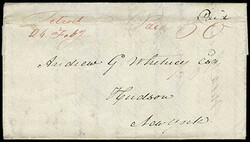 Detroit Paid
24 Feby Paid 50
Andrew G Whitney Esq
Hudson
New York